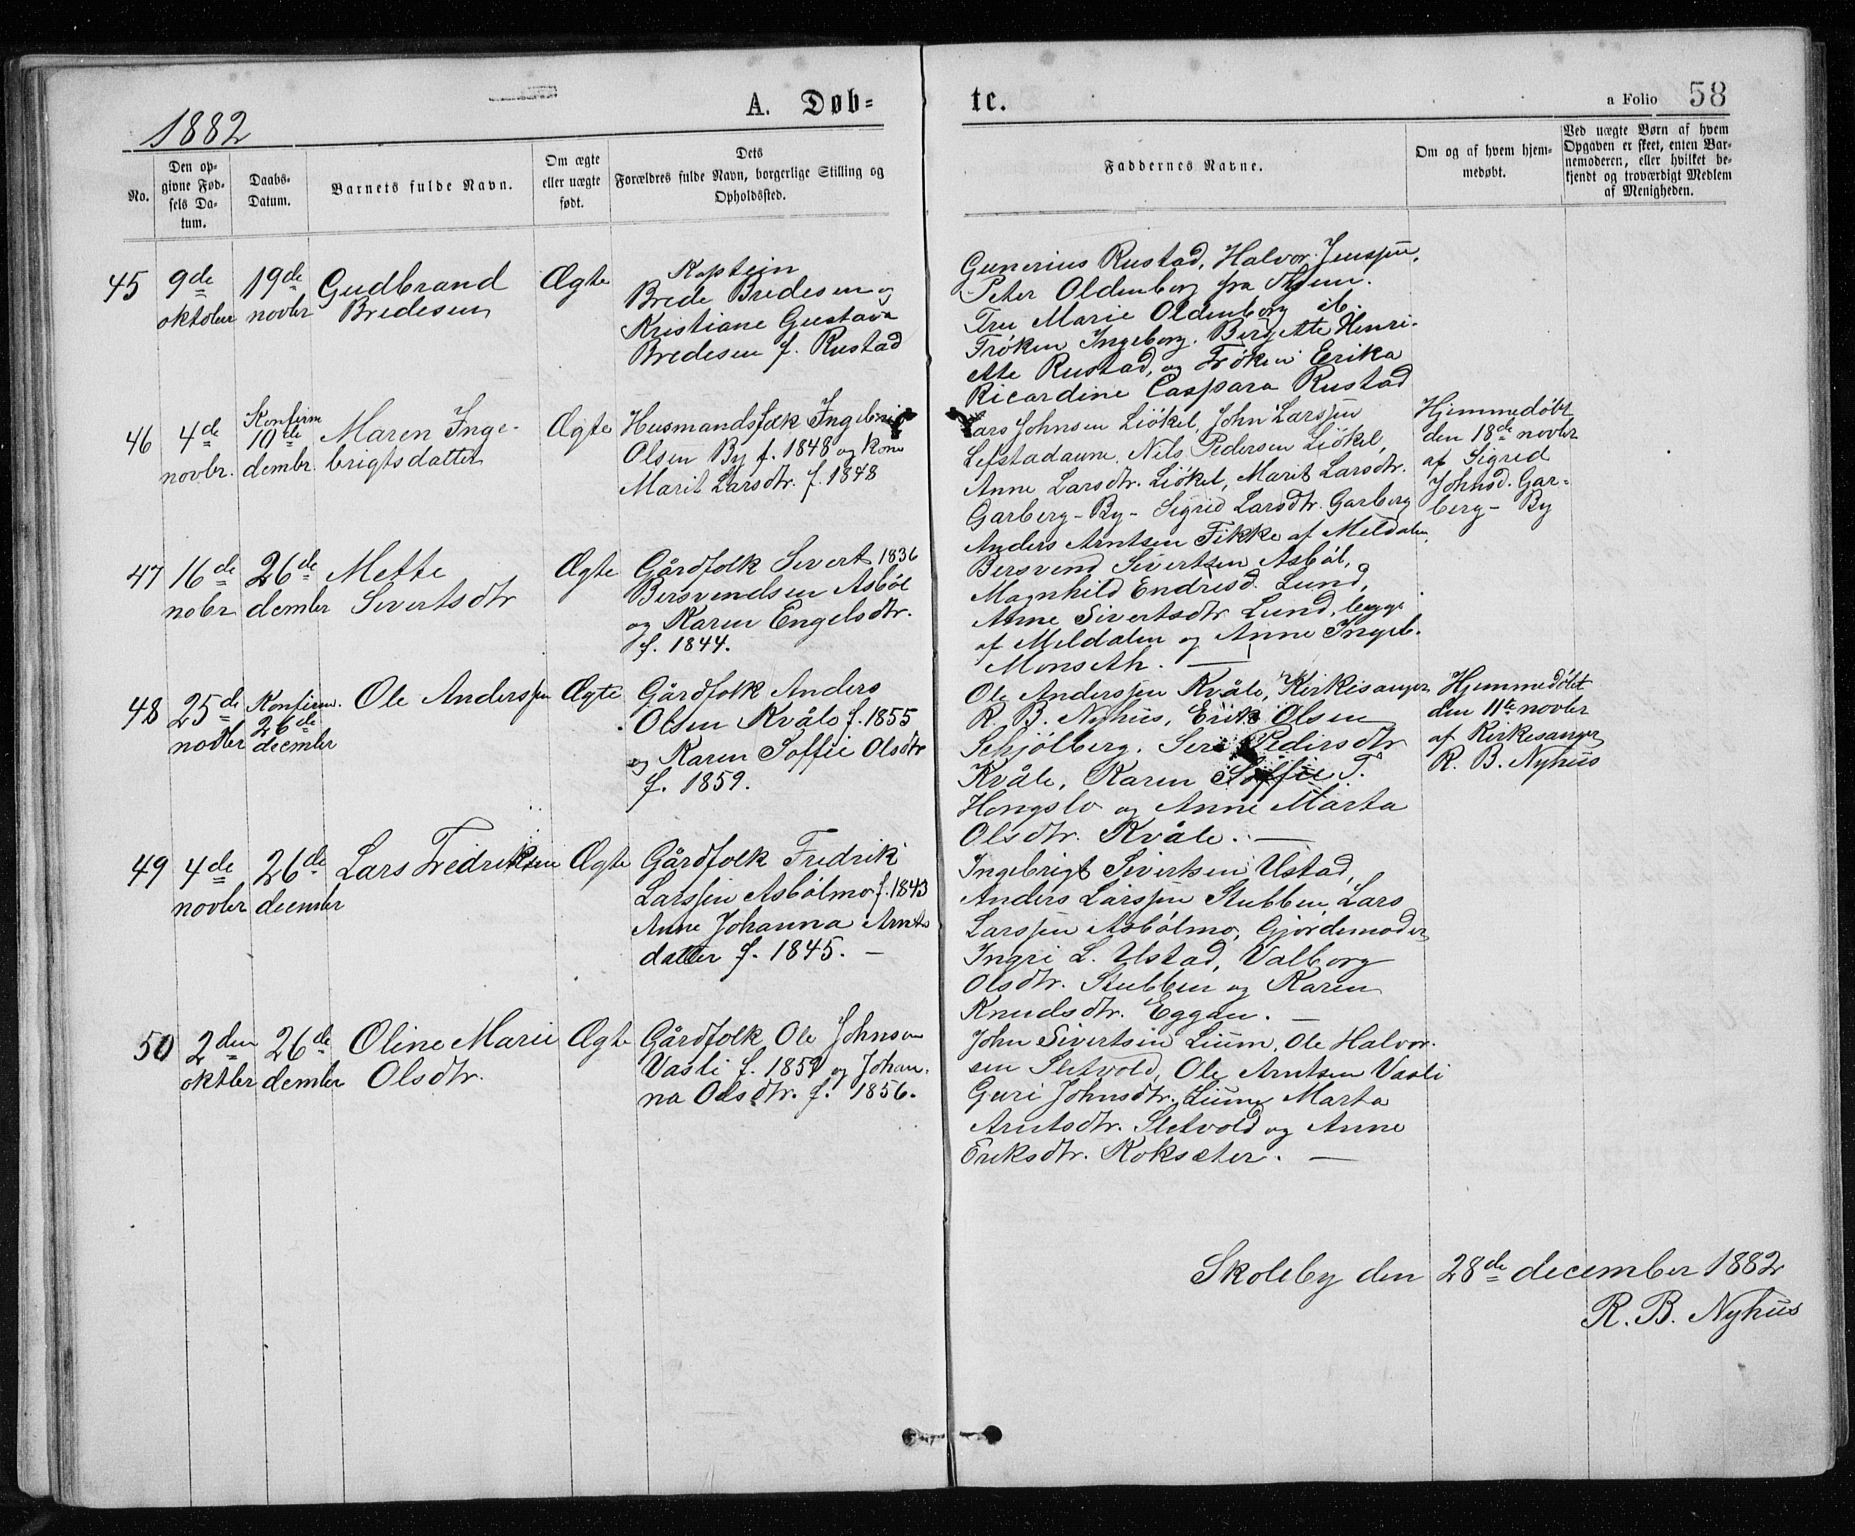 1882
A. Døb=
te.
a Folio 58
No.
Den op-
givne Fød-
sels Da-
tum.
Daabs-
Datum.
Barnets fulde Navn.
Om ægte
eller uægte
født.
Dets
Forældres fulde Navn, borgerlige Stilling og
Opholdssted.
Faddernes Navne.
Om og af hvem hjem-
medøbt.
Ved uægte Børn af hvem
Opgaven er skeet, enten Bar-
nemoderen, eller hvilket be-
kjendt og troværdigt Medlem
af Menigheden.
45
9de
oktober
19de
novbr
Gudbrand
Bredesen
Ægte
Kaptein
Brede Bredesen og
Kristiane Gustava
Bredesen f. Rustad
Gunerius Rustad, Halvor Jenssen,
Peter Oldenborg fra
Fru Marie Oldenborg ib.
Frøken Ingeborg. Bergette Henri-
ette Rustad, og Frøken Erika
Ricardine Caspara Rustad
46
4de
novbr.
Konfirm
10de
dembr.
Maren Inge-
brigtsdatter
Ægte
Husmandsfolk Ingebrigt
Olsen By f. 1848 og kone
Marit Larsdtr. f. 1848
Lars Johnsen Liøkel, John Larssen
Lefstadaune, Nils Pedersen Liøkel,
Anne Larsdtr. Liøkel, Marit Larsdtr.
Garberg - By - Sigrid Larsdtr. Garberg
Hjemmedøbt
den 18de novbr
af Sigrid
Johnsd. Gar-
berg - By
47
16de
nobr
26de
dember
Mette
Sivertsdtr
Ægte
Gårdfolk Sivert 1836
Bersvendsen Asbøl
og Karen Engelsdtr.
f. 1844.
Anders Arntsen Fikke af Meldalen,
Bersvend Sivertsen Asbøl,
Magnhild Endresd. Lund,
Anne Sivertsdtr Lund, begge
af Meldalen og Anne Ingeb.
Monseth. —
48
25de
novbr
Konfirm.
26de
decmber
Ole Anderssen
Ægte
Gårdfolk Anders
Olsen Kvåle f. 1855
og Karen Soffie Olsdtr
f. 1859.
Ole Anderssen Kvåle, Kirkesanger
R. B. Nyhus, Erik Olsen
Schjølberg, Seri Pedersdtr
Kvåle, Karen Soffie T.
Hongslo og Anne Marta
Olsdtr. Kvåle. —
Hjemmedøbt
den 11te novbr
af Kirkesanger
R. B. Nyhus
49
4de
novbr
26de
decmber
Lars Fredriksen
Ægte
Gårdfolk Fredrik
Larssen Asbølmo f. 1843
Anne Johanna Arnts
datter f. 1845. —
Ingebrigt Sivertsen Ustad,
Anders Larssen Stubben, Lars
Larssen Asbølmo, Gjordemoder
Ingri L. Ustad, Valborg
Olsdtr. Stubben og Karen
Knudsdtr. Eggan. —
50
2den
oktbr
26de
dember
Oline Marie
Olsdtr.
Ægte
Gårdfolk Ole Johnsen
Vasli f. 1859 og Johan-
na Olsdtr. f. 1856.
John Sivertsen Lium, Ole Halvor-
sen Sletvold, Ole Arntsen Vasli
Guri Johnsdtr. Lium, Marta
Arntsdtr. Sletvold og Anne
Eriksdtr. Roksæter. —
Skoleby den 28de december 1882
R. B. Nyhus